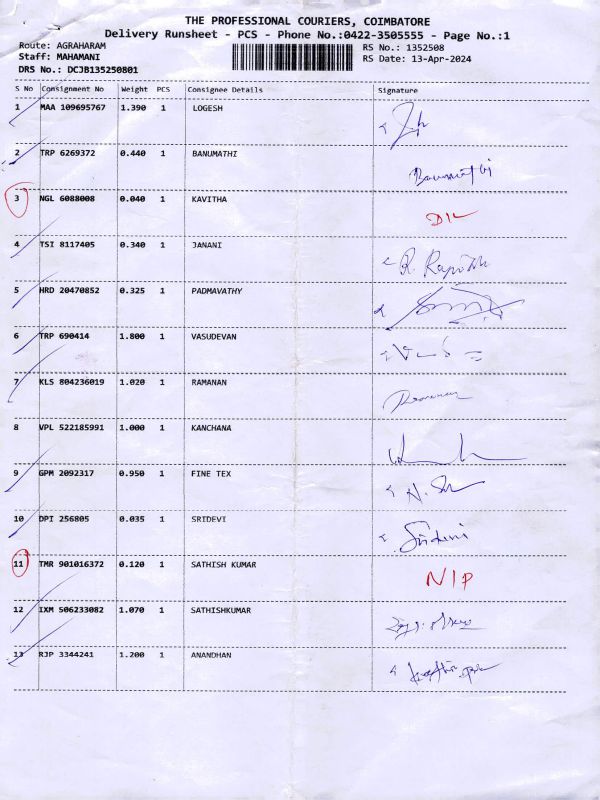 THE PROFESSIONAL COURIERS, COIMBATORE
Delivery Runsheet - PCS - Phone No.:0422-3505555 - Page No.:1
Route: AGRAHARAM RS No.: 1352508
Staff: MAHAMANI RS Date: 13-Apr-2024
DRS No.: DCJB135250801
S No Consignment No Weight PCS Consignee Details Signature
1 MAA 109695767 1.390 1 LOGESH
2 TRP 6269372 0.440 1 BANUMATHI Banumathi
3 NGL 6088008 0.040 1 KAVITHA D/L
4 TSI 8117405 0.340 1 JANANI
5 HRD 20470852 0.325 1 PADMAVATHY
6 TRP 690414 1.800 1 VASUDEVAN
7 KLS 804236019 1.020 1 RAMANAN
8 VPL 522185991 1.000 1 KANCHANA
9 GPM 2092317 0.950 1 FINE TEX
10 DPI 256805 0.035 1 SRIDEVI Sridevi
11 TMR 901016372 0.120 1 SATHISH KUMAR N/P
12 IXM 506233082 1.070 1 SATHISHKUMAR
13 RJP 3344241 1.200 1 ANANDHAN